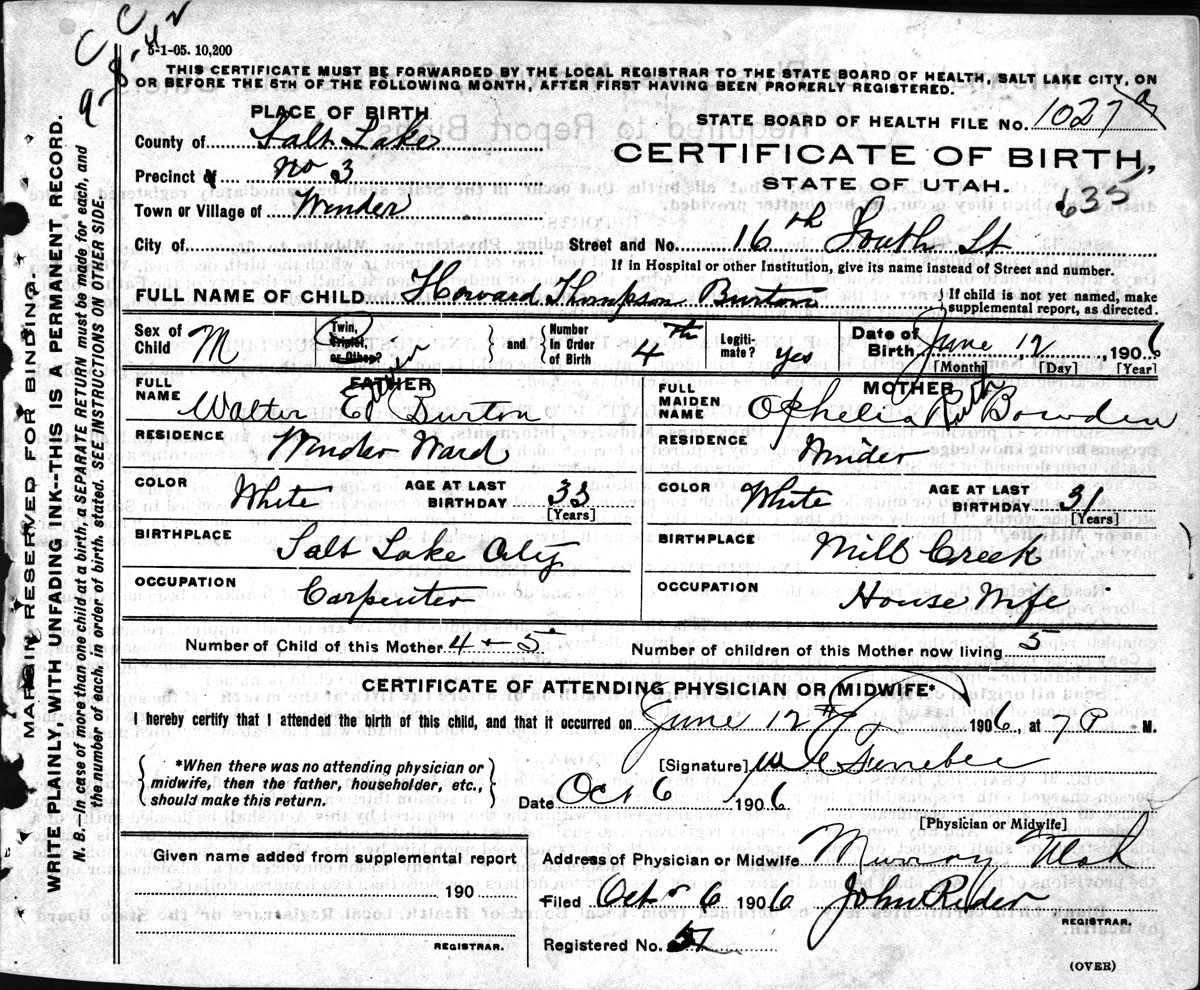 5-1-05. 10,200
THIS CERTIFICATE MUST BE FORWARDED BY THE LOCAL REGISTRAR TO THE STATE BOARD OF HEALTH, SALT LAKE CITY, ON
OR BEFORE THE 5TH OF THE FOLLOWING MONTH, AFTER FIRST HAVING BEEN PROPERLY REGISTERED.
PLACE OF BIRTH
STATE BOARD OF HEALTH FILE NO. 1027
County of Salt Lake
CERTIFICATE OF BIRTH,
Precinct of No 3
STATE OF UTAH.
635
Town or Village of Winder
City of
Street and No. 16th South St
If in Hospital or other Institution, give its name instead of Street and number.
FULL NAME OF CHILD Howard Thompson Burton
If child is not yet named, make
supplemental report, as directed.
Sex of Child M
Twin, Triplet, or Other?
and
Number in Order of Birth 4th
Legiti-mate? yes
Date of Birth June 12, 1906
[Month] [Day] [Year]
FATHER
FULL NAME Walter E Burton
MOTHER
FULL MAIDEN NAME Ophelia Ruth Bowden
RESIDENCE Winder Ward
RESIDENCE Winder
COLOR White AGE AT LAST BIRTHDAY 33 [Years]
COLOR White AGE AT LAST BIRTHDAY 31 [Years]
BIRTHPLACE Salt Lake City
BIRTHPLACE Mill Creek
OCCUPATION Carpenter
OCCUPATION House Wife
Number of Child of this Mother 4 + 5
Number of children of this Mother now living 5
CERTIFICATE OF ATTENDING PHYSICIAN OR MIDWIFE*
I hereby certify that I attended the birth of this child, and that it occurred on June 12th 1906, at 7 P M.
*When there was no attending physician or
midwife, then the father, householder, etc.,
should make this return.
[Signature]
Date Oct 6 1906
[Physician or Midwife]
Given name added from supplemental report
190
REGISTRAR.
Address of Physician or Midwife Murray Utah
Filed Oct 6 1906 John Rider
REGISTRAR.
Registered No.
(OVER)
MARGIN RESERVED FOR BINDING.
WRITE PLAINLY, WITH UNFADING INK--THIS IS A PERMANENT RECORD.
N. B.—In case of more than one child at a birth, a SEPARATE RETURN must be made for each, and
the number of each, in order of birth, stated. SEE INSTRUCTIONS ON OTHER SIDE.